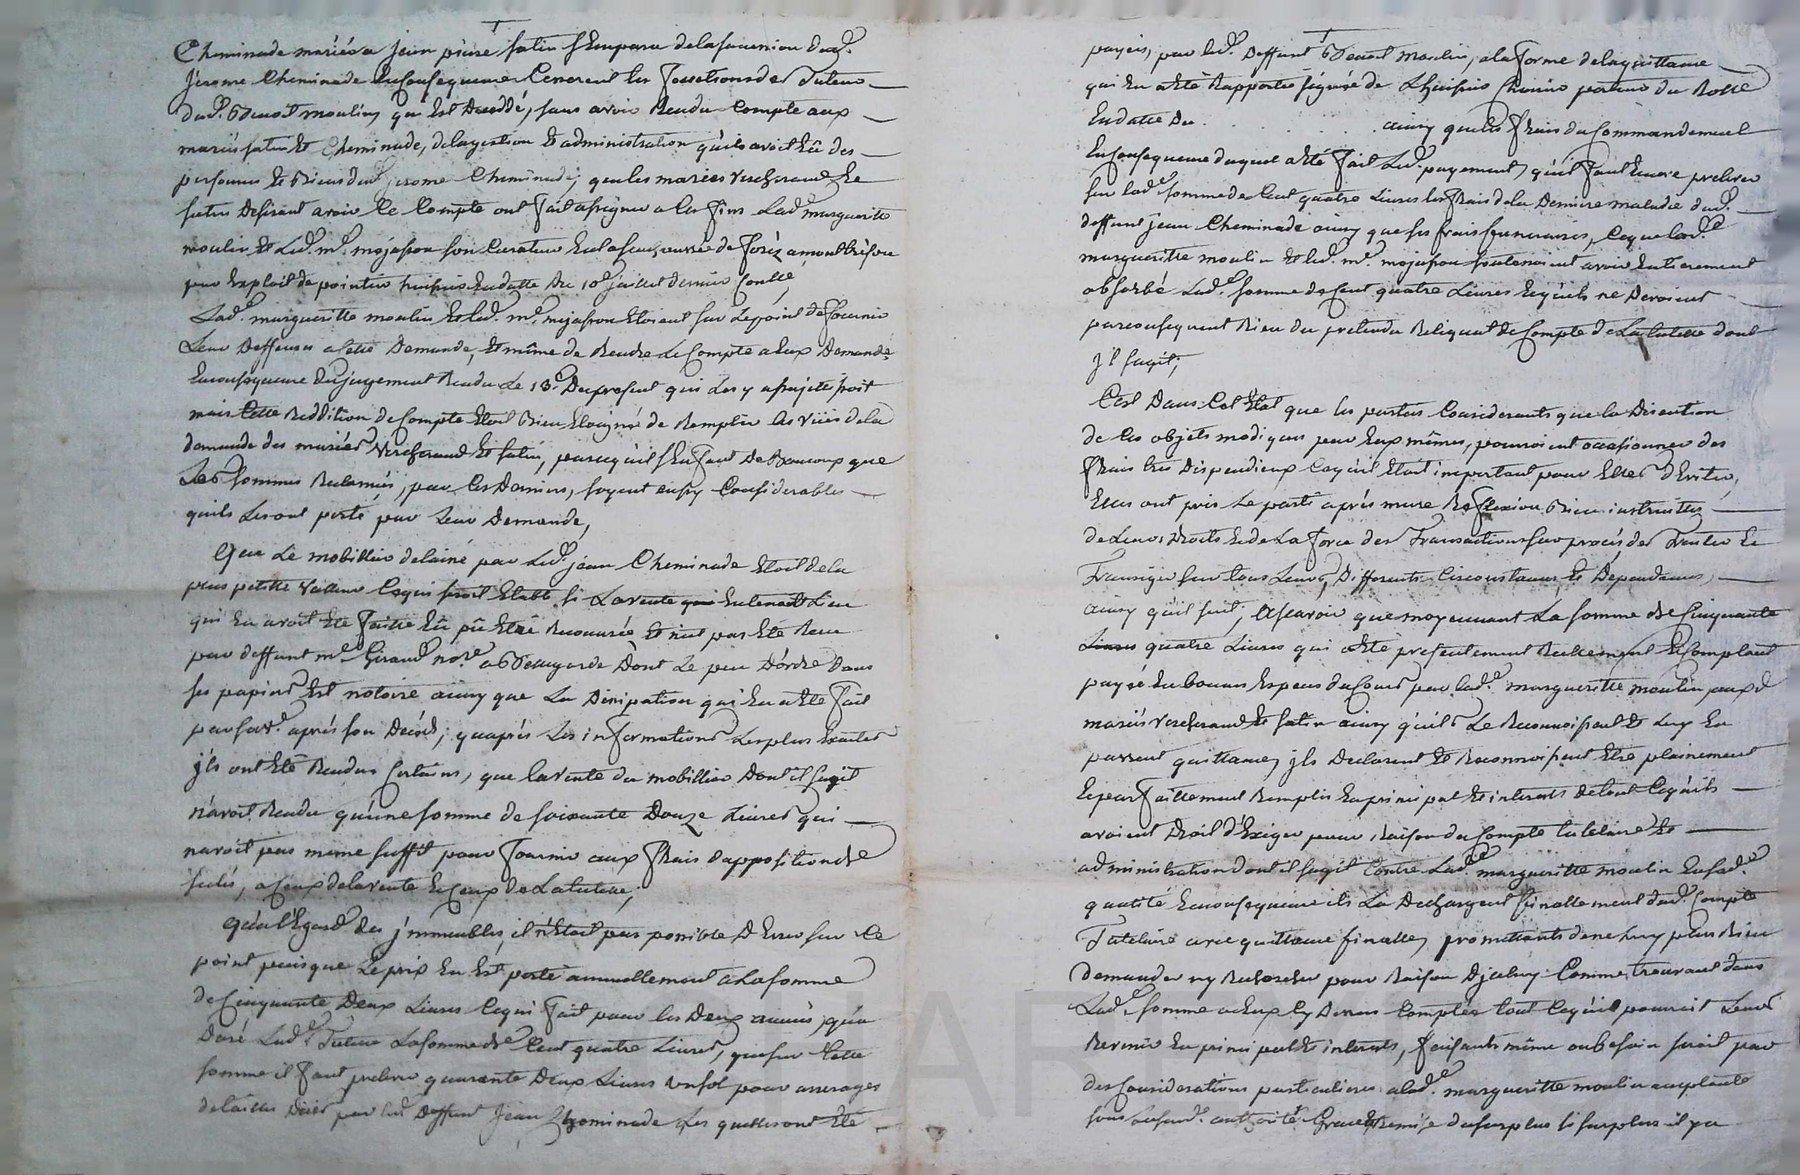 Cheminade mariés a jean pierre satin s'Empara de la succession dud.
jerome Cheminade En Consequence Cesserent les fonctions de Tuteur
dud. Benoit moulin qui Est Decedé, sans avoir Rendu Compte aux
mariés satin Et Cheminade, de la gestion Et administration qu'il avoit Eû des
personne Et Biens dud. jerome Cheminade; que les mariés Vercherand Et
satin Desirant avoir Ce Compte ont fait assigner a Ces fins Lad. marguerite
moulin Et Led. me. mojasson son Curateur En la senechaussée de forez a montbrison
par Exploit de pointu huissier En datte du 10e juillet dernier Conllé,
Lad. margueritte moulin Et Led. me. mojasson Etoient sur Le point de fournir
Leur Deffenses a Cette Demande, Et même de Rendre Le Compte a Eux Demandé
En consequence du jugement Rendu Le 13e. Du present qui Les y assujetissoit
mais Cette Reddition de Compte Etoit Bien Eloigné de Remplir les vües de la
demande des mariés Vercherand Et satin, parcequ'il s'En faut De Beaucoup que
Les sommes Reclamées, par Ces Derniers, soyent aussy Considerables
qu'ils Les ont porté par Leur Demande,
Que Le mobillier delaissé par Led. jean Cheminade Etoit de la
plus petitte valleur Ce qui seroit Etabli si La vente qui En
qui En avoit Eté faitte Eû pû Etre Recouvrée Et n'eut pas Eté Reçu
par deffunt me. Giraud nore. a Bellegarde Dont Le peu D'ordre Dans
ses papiers Est notoire ainsy que La Dissipation qui En a Eté fait
par sa ve. après son Décès; qu'après Les informations Les plus Exactes
jls ont Eté Rendus Certains, que la vente du mobillier Dont il s'agit
n'avoit Rendu qu'une somme de soixante Douze Livres qui
n'avoit pas meme suffit pour fournir aux frais d'apposition de
scelés, a Ceux de la vente Et Ceux de La tutelle;
Qu'a l'Egard des jmmeubles, il n'Etoit pas possible D'Errer sur Ce
point puisque Le prix En Est porté annuellement a La somme
de Cinquante Deux Livres Ce qui fait pour les Deux années qu'a
Duré Lad. Tutelle La somme de Cent quatre Livres, que sur Cette
somme il faut prelever quarante Deux Livres un sol pour arrerages
de tailles Dües par led. Deffunt jean Cheminade Les quelles ont Eté
payées, par led. Deffunt Benoit moulin, a la forme de la quittance
qui En a Eté Rapportée signée de L'huissier Chovin porteur du Rolle
En datte Du ainsy que les frais du Commandement
En Consequence duquel a Eté fait Led. payement, qu'il faut Encore prelever
sur lad. somme de Cent quatre Livres les frais de la Derniere maladie dud.
deffunt jean Cheminade ainsy que ses frais funeraires, Ce que lad.
margueritte moulin Et led. me. mojasson soutenoient avoir Entierement
absorbé Lad. somme de Cent quatre Livres Et qu'ils ne Devoient
par consequent Rien du pretendu Reliquat de Compte de La tutelle dont
jl s'agit;
C'est Dans Cet Etat que les parties Considerants que la Discution
de Ces objets modiques par Eux mêmes, pourroient occasionner des
frais très Dispendieux Ce qu'il Etoit important pour Elles d'Eviter,
Elles ont pris Le parti après mure Reflexion Bien instruittes
de Leurs Droits Et de La force des Transactions sur procès de Traiter Et
Transiger sur tous Leurs Differents Circonstances Et Dependances,
ainsy qu'il suit; a sçavoir que moyennant La somme de Cinquante
Livres quatre Livres qui a Eté presentement Reellement Et Comptant
payée En bonnes Especes du Cours par lad. margueritte moulin auxd.
mariés Vercherand Et satin ainsy qu'ils Le Reconnoissent Et Luy En
passent quittance, jls Declarent Et Reconnoissent Etre plainement
Et parfaittement Remplis En principal Et interets de tout Ce qu'ils
avoient Droit d'Exiger pour Raison du Compte tutelaire Et
administration dont il s'agit Contre Lad. margueritte moulin En sad.
qualité En consequence ils La Dechargent finallement dud. Compte
Tutelaire avec quittance finalle, promettants de ne luy plus Rien
demander ny Rechercher pour Raison D'jceluy Comme trouvant dans
Lad. somme a Eux Cy Dessus Comptée tout Ce qu'il pourroit Leur
Revenir En principal Et interets, faisants même au besoin seroit par
des Considerations particulieres a lad. margueritte moulin acceptante
sous la susd. authorité Grace Et Remise du surplus si surplus il y a